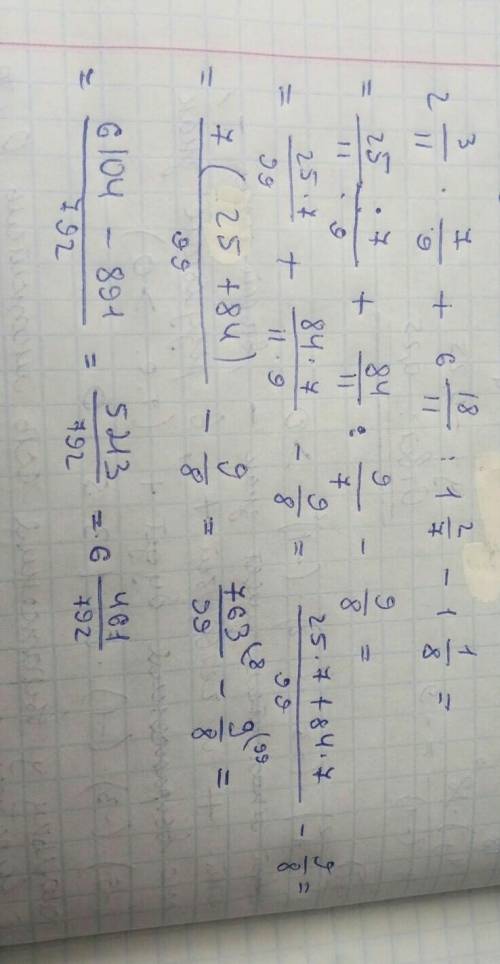 2 3/11 · 7/9 + 6 18/11 : 1 2/7 - 1 1/8 =
= 25·7/11·9 + 84/11 : 9/7 - 9/8 =
= 25·7/99 + 84·7/11·9 - 9/8 = 25·7+84·7/99 - 9/8 =
= 7(25+84)/99 - 9/8 = 763(8/99 - 9(99/8 =
= 6104 - 891/792 = 5213/792 = 6 461/792